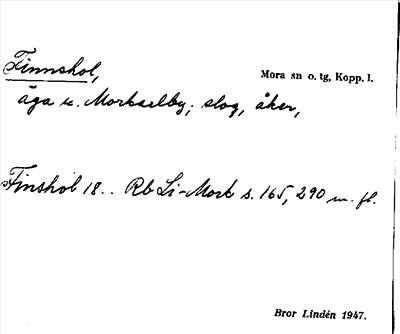 Finnshol,
Mora sn o. tg, Kopp. l.
äga u. Morkarlby; slog, åker,
Finshol 18.. Rb Li-Mork s. 165, 290 m. fl.
Bror Lindén 1947.